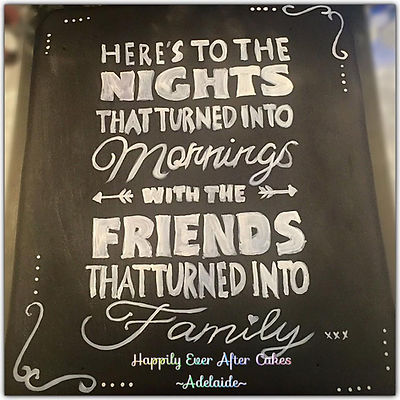 HERE'S TO THE
NIGHTS
THAT TURNED INTO
Mornings
WITH THE
FRIENDS
THAT TURNED INTO
Family xxx
Happily Ever After Cakes
~Adelaide~